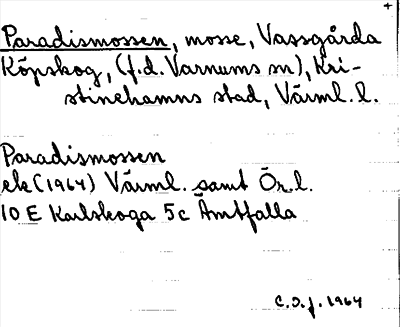 +
Paradismossen, mosse, Vassgårda
Köpskog, (f.d. Varnums sn), Kri-
stinehamns stad, Värml. l.
Paradismossen
ek (1964) Värml. samt Ör. l.
10 E Karlskoga 5c Åmtfalla
C.O.f. 1964